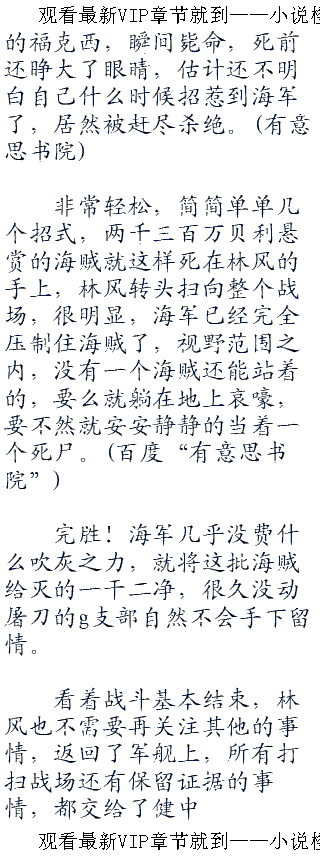 观看最新VIP章节就到——小说检
的福克西，瞬间毙命，死前
还睁大了眼睛，估计还不明
白自己什么时候招惹到海军
了，居然被赶尽杀绝。(有意
思书院)
非常轻松，简简单单几
个招式，两千三百万贝利悬
赏的海贼就这样死在林风的
手上，林风转头扫向整个战
场，很明显，海军已经完全
压制住海贼了，视野范围之
内，没有一个海贼还能站着
的，要么就躺在地上哀嚎，
要不然就安安静静的当着一
个死尸。(百度“有意思书
院”)
完胜！海军几乎没费什
么吹灰之力，就将这批海贼
给灭的一干二净，很久没动
屠刀的g支部自然不会手下留
情。
看着战斗基本结束，林
风也不需要再关注其他的事
情，返回了军舰上，所有打
扫战场还有保留证据的事
情，都交给了健中
观看最新VIP章节就到——小说检